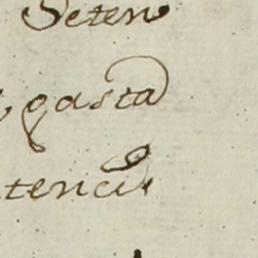 Seten
gasta
tencia